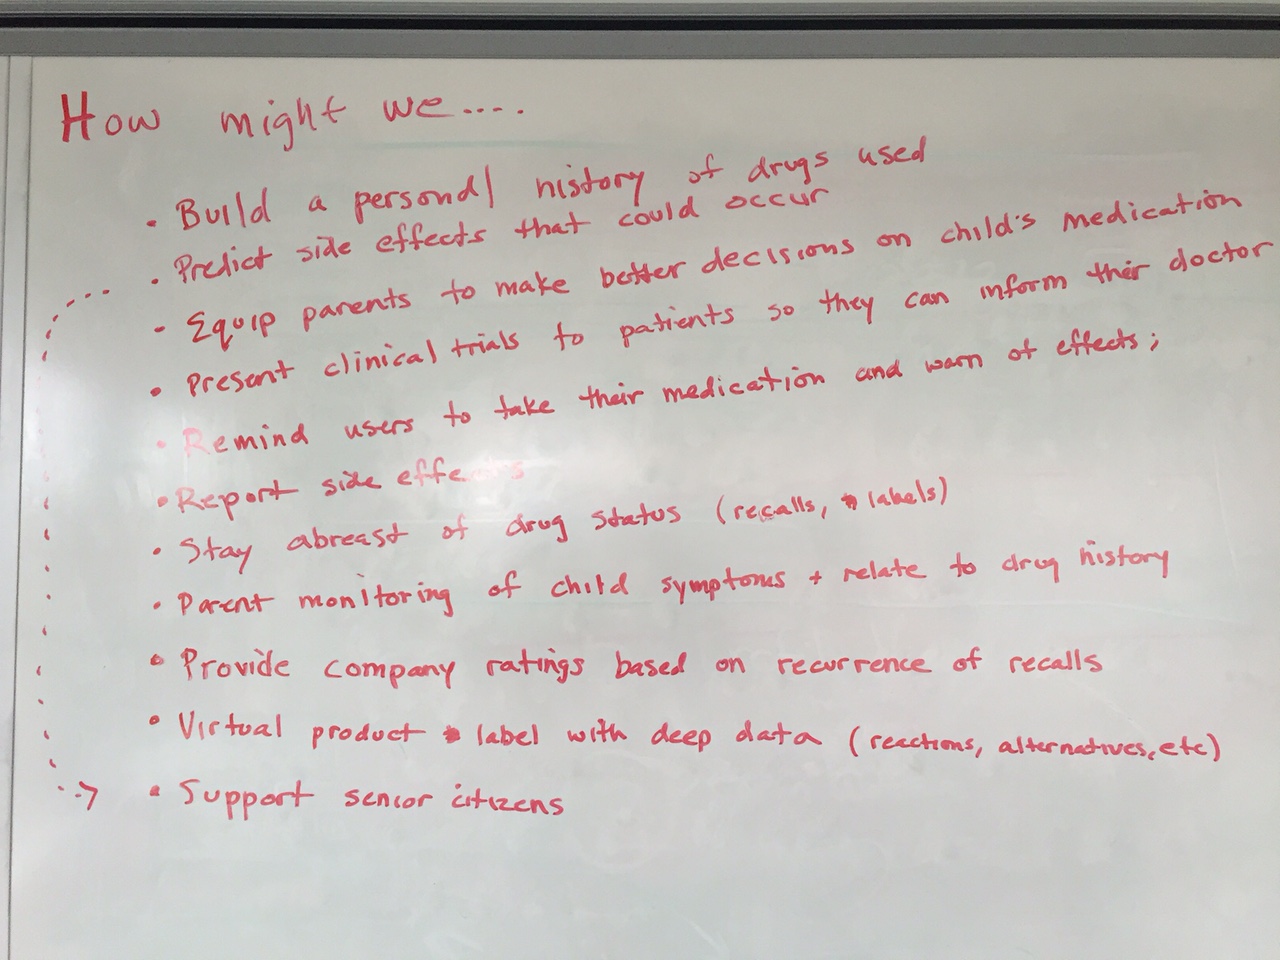 How might we....
• Build a personal history of drugs used
• Predict side effects that could occur
- Equip parents to make better decisions on child's medication
• Present clinical trials to patients so they can inform their doctor
• Remind users to take their medication and warn of effects;
• Report side effects
• Stay abreast of drug status (recalls, labels)
• Parent monitoring of child symptoms + relate to drug history
• Provide company ratings based on recurrence of recalls
• Virtual product label with deep data (reactions, alternatives, etc)
• Support senior citizens